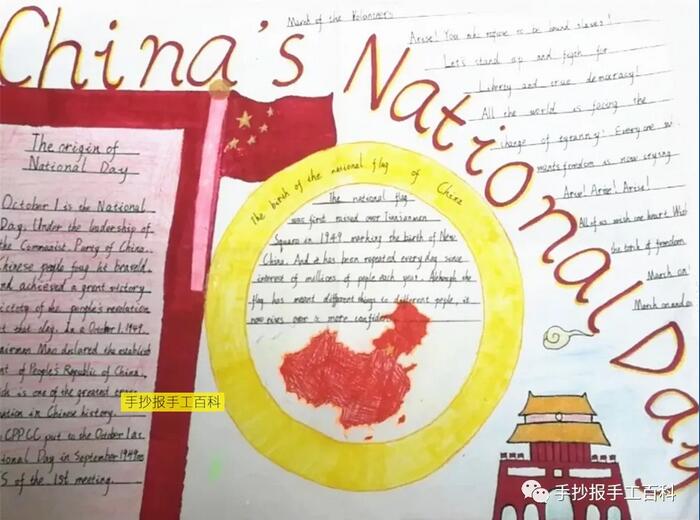 China's National Day
March of the Volunteers
Arise! You who refuse to be bound slaves!
Let's stand up and fight for
Liberty and true democracy!
All the world is facing the
change of tyranny: Everyone w
wants freedom is now crying
Arise! Arise! Arise!
All of us with one heart Who
the torch of freedom
March on!
March on and o
The origin of
National Day
October 1 is the National
Day. Under the leadership of
the Communist Party of China.
Chinese people
and achieved a great victory
of the people's revolution
that day. In October 1.1949.
airman Mao declared the establish
nt of People's Republic of China.
is one of the greatest
ution in Chinese history.
CPPCC put to the October 1 as
tional Day in September 1949
S of the 1st meeting.
The birth of the national flag of China
The national flag
was first raised over Tiananmen
Square in 1949 marking the birth of New
China. And it has been repeated every day since
interest of millions of people each year. Although the
flag has meant different things to different people, it
now gives over a more confiden
手抄报手工百科
手抄报手工百科